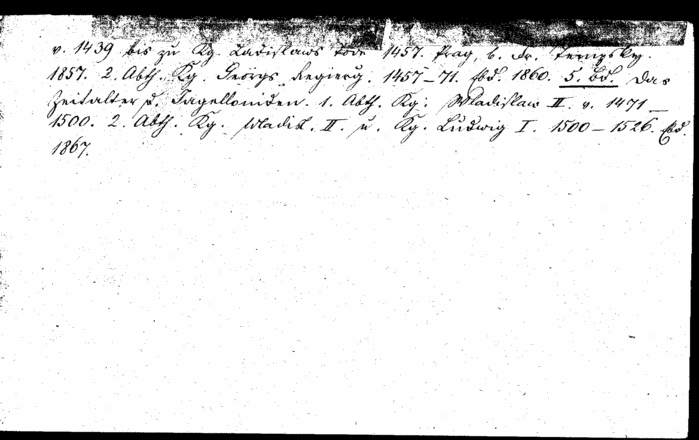 v. 1439 bis zu Kg. Ladislaws Tode 1457. Prag, b. Fr. Tempsky.
1857. 2. Abth. Kg. Georgs Regierg. 1457–71. Ebd. 1860. 5. Bd. Das
Zeitalter d. Jagelloniden. 1. Abth. Kg. Wladislaw II. v. 1471–
1500. 2. Abth. Kg. Wladisl. II. u. Kg. Ludwig I. 1500–1526. Ebd.
1867.